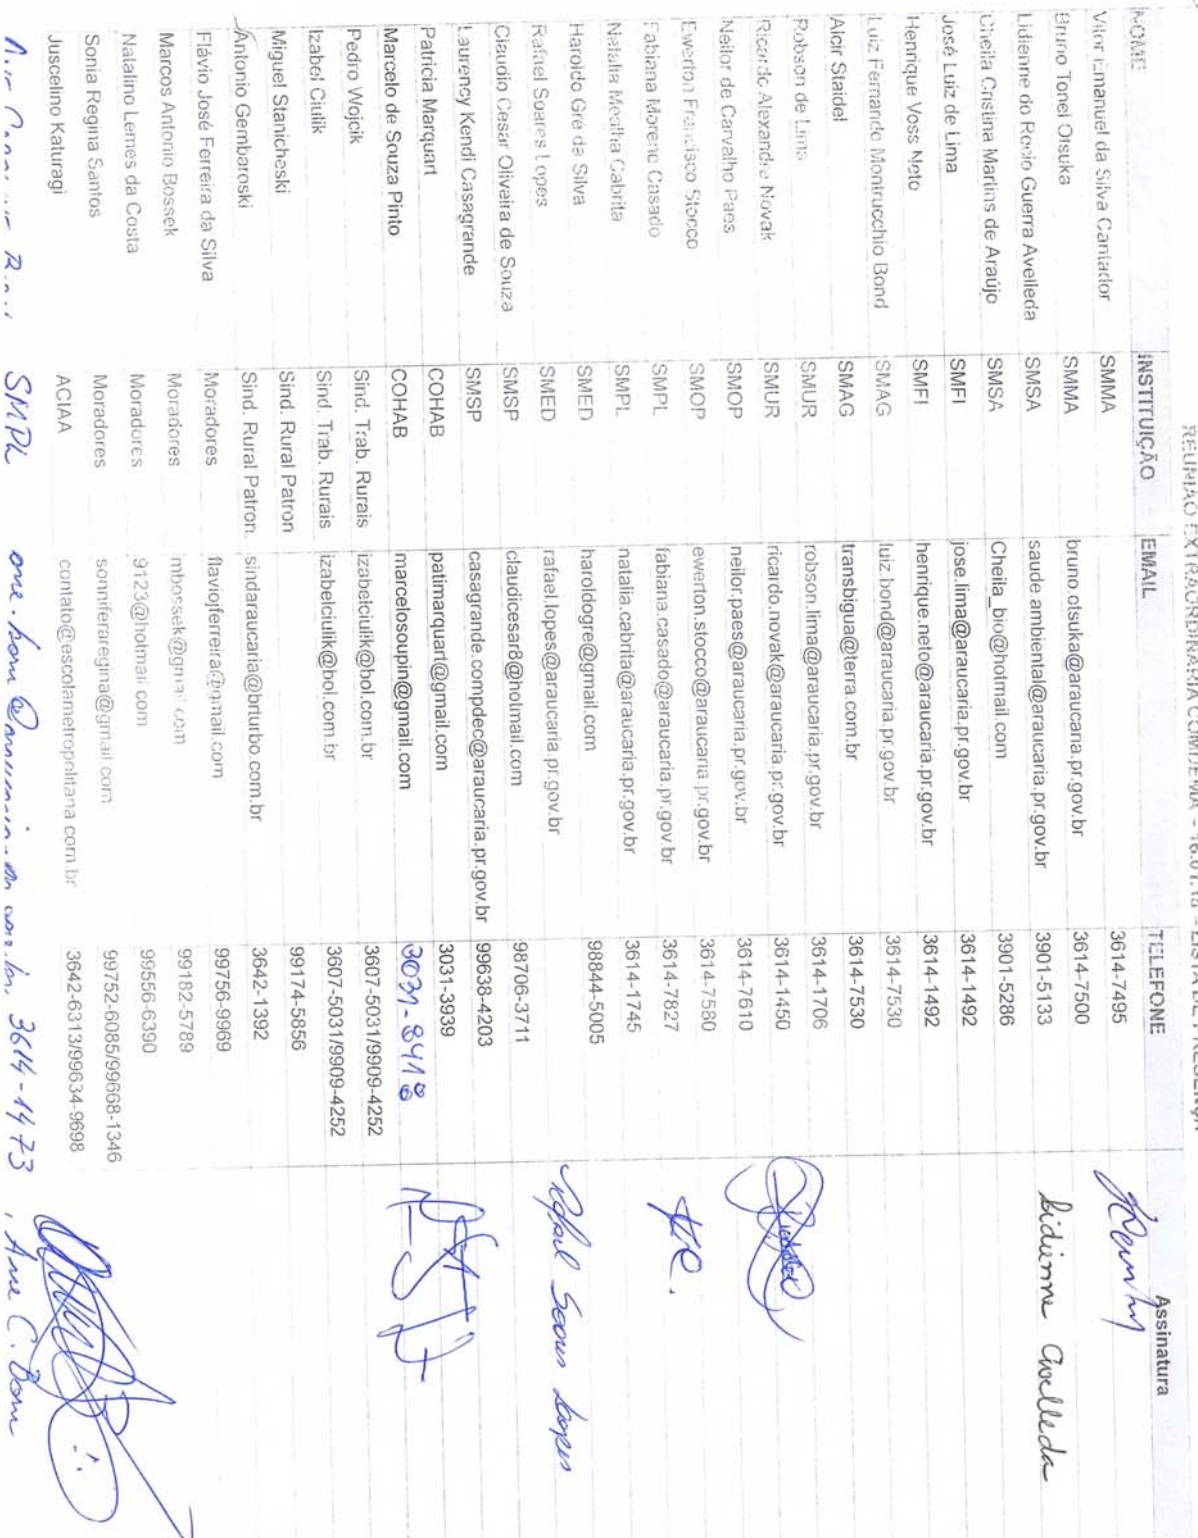 REUNIÃO EXTRAORDINÁRIA COMDEMA - 16.01.18 - LISTA DE PRESENÇA
NOME INSTITUIÇÃO EMAIL TELEFONE Assinatura
Vitor Emanuel da Silva Cantador SMMA 3614-7495
Bruno Tonel Otsuka SMMA bruno.otsuka@araucaria.pr.gov.br 3614-7500
Lidienne do Rocio Guerra Avelleda SMSA saude.ambiental@araucaria.pr.gov.br 3901-5133 Lidienne Avelleda
Cheila Cristina Martins de Araújo SMSA Cheila_bio@hotmail.com 3901-5286
José Luiz de Lima SMFI jose.lima@araucaria.pr.gov.br 3614-1492
Henrique Voss Neto SMFI henrique.neto@araucaria.pr.gov.br 3614-1492
Luiz Fernando Montrucchio Bond SMAG luiz.bond@araucaria.pr.gov.br 3614-7530
Alcir Staidel SMAG transbigua@terra.com.br 3614-7530
Robson de Lima SMUR robson.lima@araucaria.pr.gov.br 3614-1706
Ricardo Alexandre Novak SMUR ricardo.novak@araucaria.pr.gov.br 3614-1450
Neilor de Carvalho Paes SMOP neilor.paes@araucaria.pr.gov.br 3614-7610
Ewerton Francisco Stocco SMOP ewerton.stocco@araucaria.pr.gov.br 3614-7580
Fabiana Moreno Casado SMPL fabiana.casado@araucaria.pr.gov.br 3614-7827
Natalia Mealha Cabrita SMPL natalia.cabrita@araucaria.pr.gov.br 3614-1745
Haroldo Gré da Silva SMED haroldogre@gmail.com 98844-5005
Rafael Soares Lopes SMED rafael.lopes@araucaria.pr.gov.br Rafael Soares Lopes
Claudio Cesar Oliveira de Souza SMSP claudicesar8@hotmail.com 98706-3711
Laurency Kendi Casagrande SMSP casagrande.compdec@araucaria.pr.gov.br 99638-4203
Patricia Marquart COHAB patimarquart@gmail.com 3031-3939
Marcelo de Souza Pinto COHAB marcelosoupin@gmail.com 3031-8418
Pedro Wojcik Sind. Trab. Rurais izabelciulik@bol.com.br 3607-5031/9909-4252
Izabel Ciulik Sind. Trab. Rurais izabelciulik@bol.com.br 3607-5031/9909-4252
Miguel Stanicheski Sind. Rural Patron 99174-5856
Antonio Gembaroski Sind. Rural Patron. sindaraucaria@brturbo.com.br 3642-1392
Flávio José Ferreira da Silva Moradores flaviojferreira@gmail.com 99756-9969
Marcos Antonio Bossek Moradores mbossek@gmail.com 99182-5789
Natalino Lemes da Costa Moradores 9123@hotmail.com 99556-6390
Sonia Regina Santos Moradores sonniferaregina@gmail.com 99752-6085/99668-1346
Juscelino Katuragi ACIAA contato@escolametropolitana.com.br 3642-6313/99634-9698
SMPL 3614-1473 Ane C. Bom